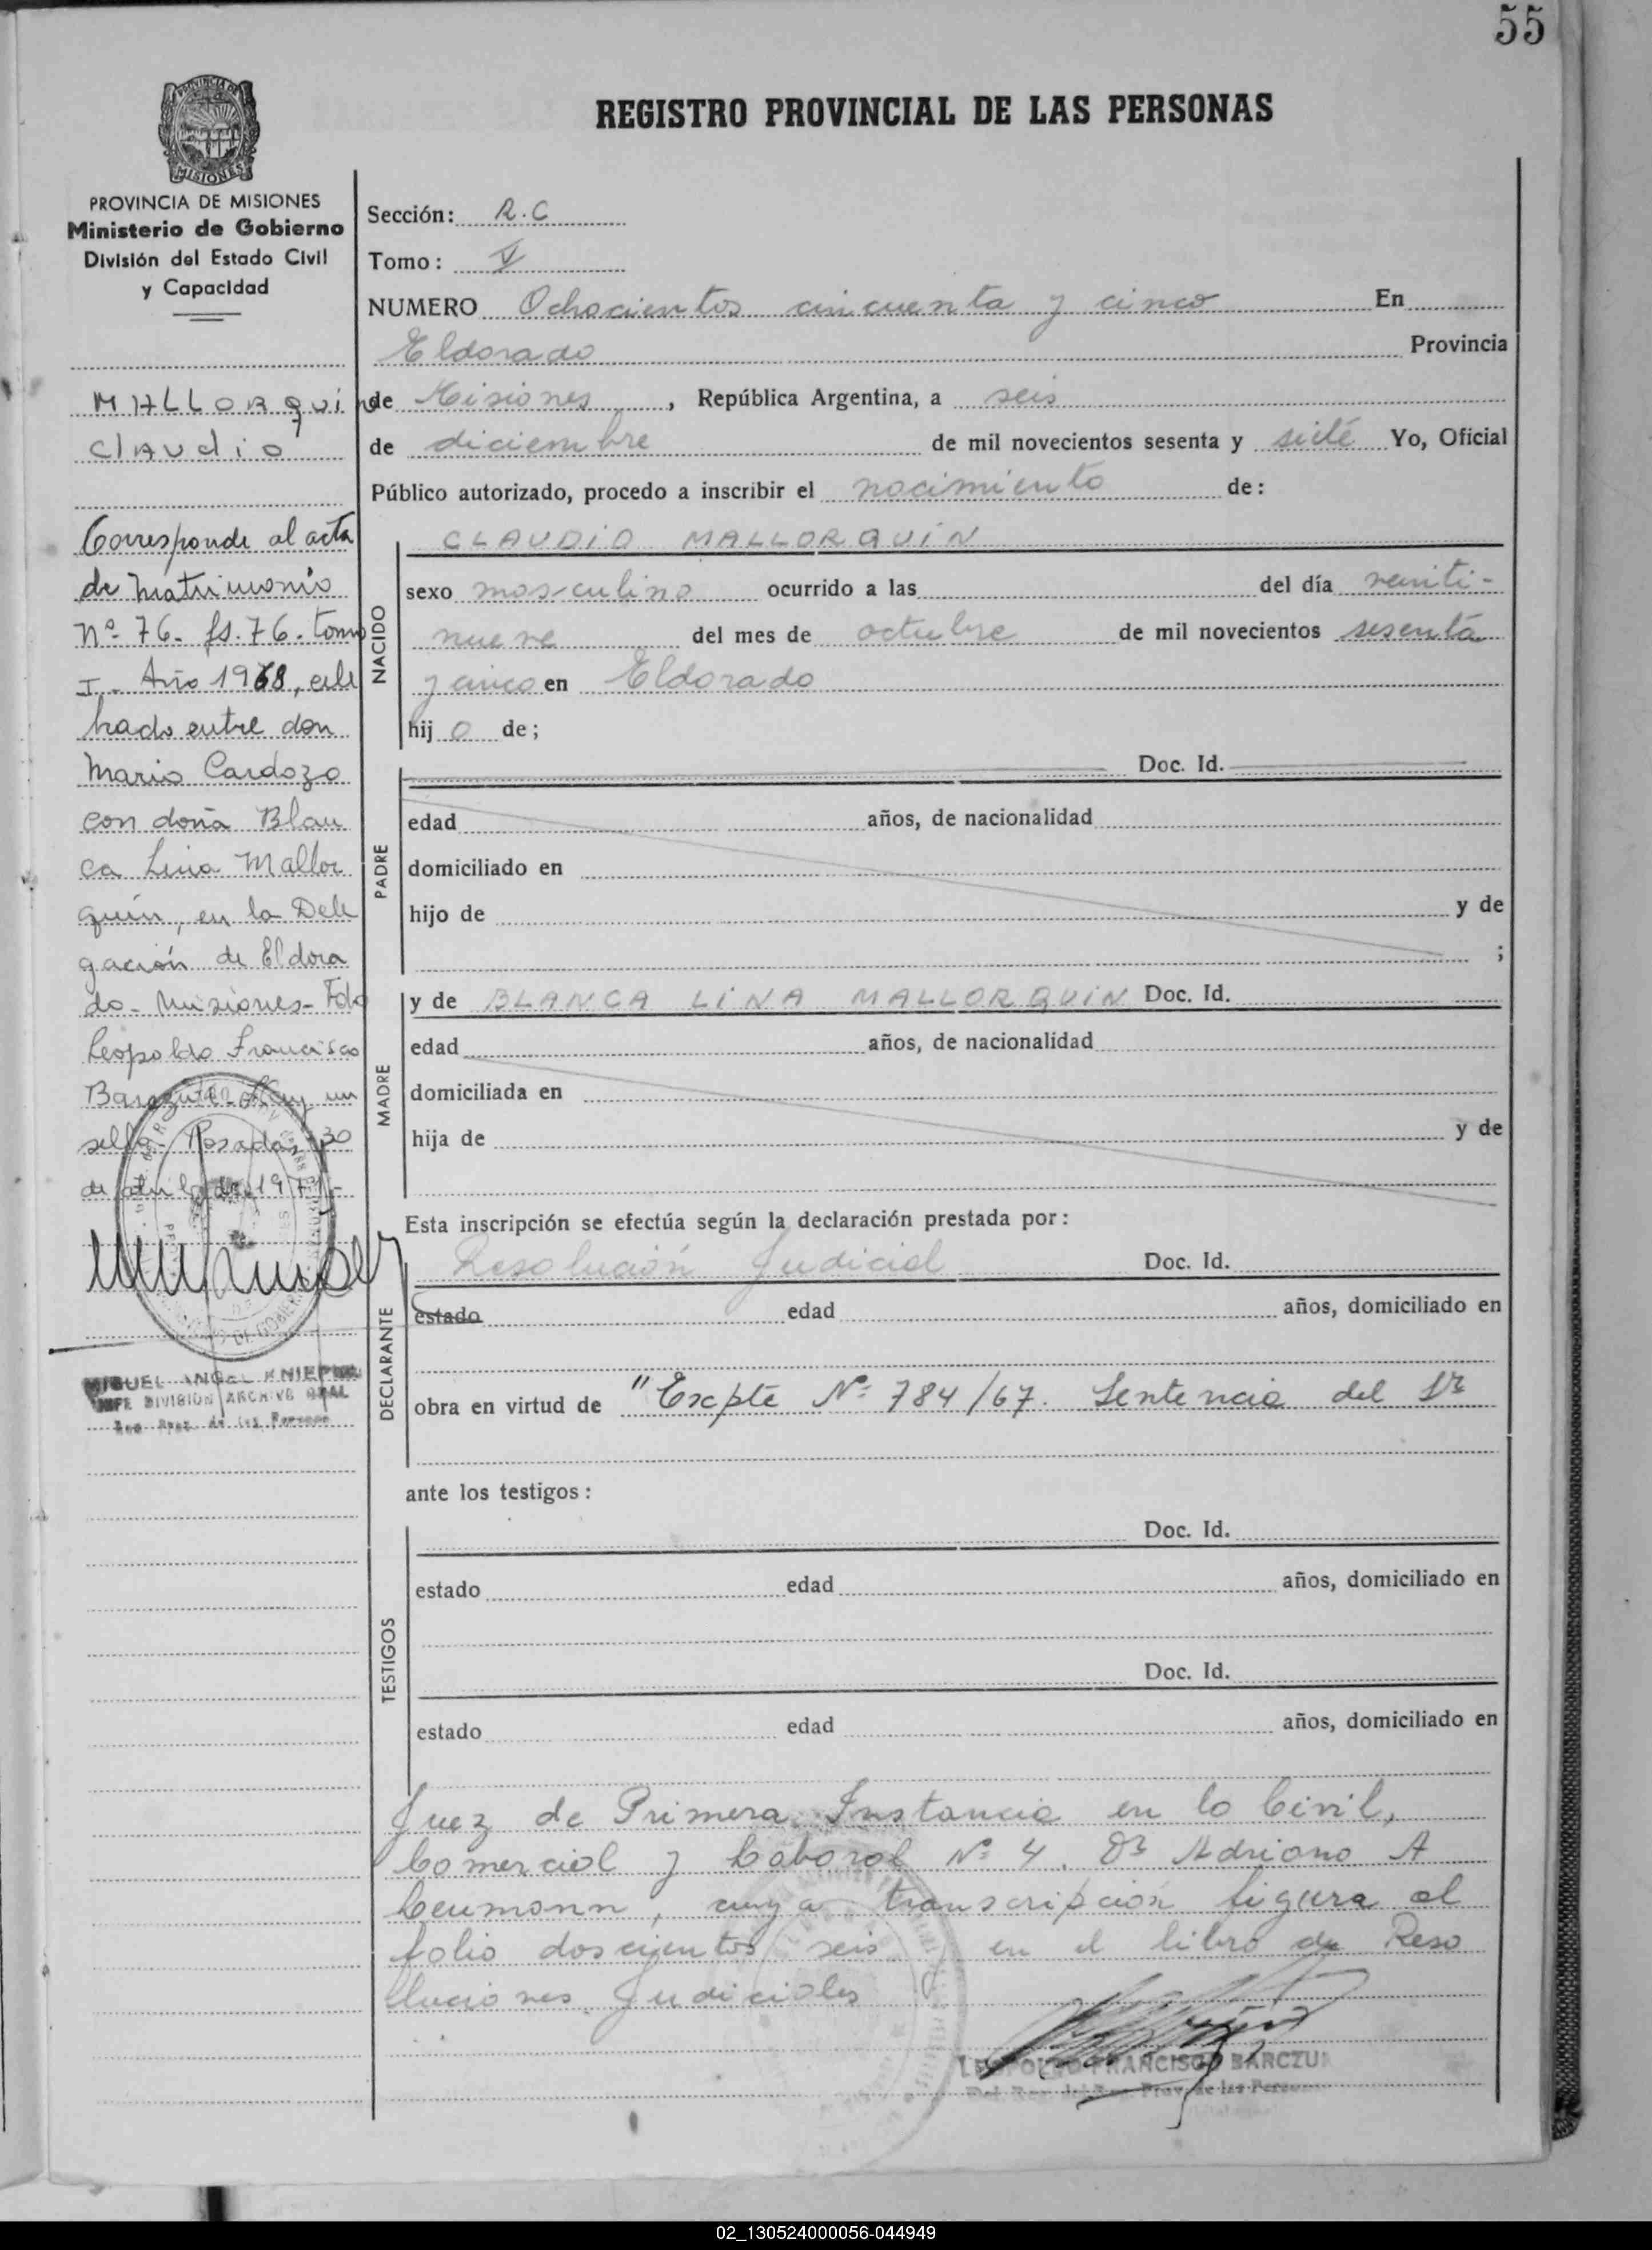 55
REGISTRO PROVINCIAL DE LAS PERSONAS
PROVINCIA DE
MISIONES
PROVINCIA DE MISIONES
Ministerio de Gobierno
División del Estado Civil
y Capacidad
MALLORQUIN
CLAUDIO
Corresponde al acta
de Matrimonio
Nº 76- fs. 76- tomo
I- Año 1968, cele
brado entre don
Mario Cardozo
con doña Blan
ca Lina Mallor
quin, en la Dele
gación de Eldora
do- Misiones- Fdo
Leopoldo Francisco
un
sello- Posadas, 30
de 19
MIGUEL ANGEL
JEFE DIVISION ARCHIVO GRAL
Sección: R.C
Tomo: V
NUMERO Ochocientos cincuenta y cinco En
Eldorado Provincia
de Misiones, República Argentina, a seis
de diciembre de mil novecientos sesenta y siete Yo, Oficial
Público autorizado, procedo a inscribir el nacimiento de:
NACIDO
CLAUDIO MALLORQUIN
sexo masculino ocurrido a las del día veinti-
nueve del mes de octubre de mil novecientos sesenta
y cinco en Eldorado
hij o de;
PADRE
Doc. Id.
edad años, de nacionalidad
domiciliado en
hijo de y de
;
MADRE
y de BLANCA LINA MALLORQUIN Doc. Id.
edad años, de nacionalidad
domiciliada en
hija de y de
Esta inscripción se efectúa según la declaración prestada por:
DECLARANTE
Resolución Judicial Doc. Id.
estado edad años, domiciliado en
obra en virtud de "Expte Nº 784/67. Sentencia del Sr
ante los testigos:
TESTIGOS
Doc. Id.
estado edad años, domiciliado en
Doc. Id.
estado edad años, domiciliado en
Juez de Primera Instancia en lo Civil,
Comercial y Laboral Nº 4. Dr Adriano A
cuya transcripción figura al
folio doscientos seis en el libro de Reso
luciones Judiciales
LEOPOLDO FRANCISCO BARCZU
02_130524000056-044949